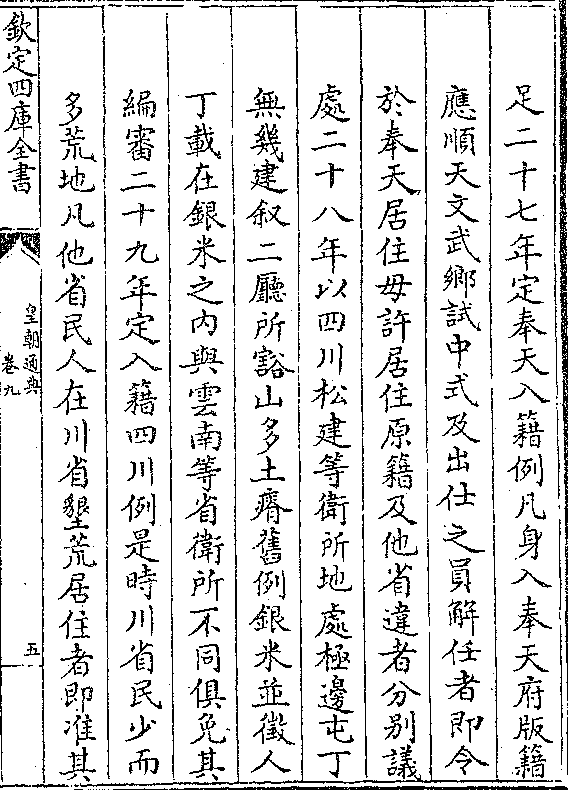 足二十七年定奉天入籍例凡身入奉天府版籍
應順天文武鄉試中式及出仕之員解任者即令
於奉天居住毋許居住原籍及他省違者分别議
處二十八年以四川松建等衛所地處極邊屯丁
無幾建叙二廳所豁山多土瘠舊例銀米並徵人
丁載在銀米之内與雲南等省衛所不同俱免其
編審二十九年定入籍四川例是時川省民少而
多荒地凡他省民人在川省墾荒居住者即准其
欽定四庫全書
皇朝通典
卷九
五